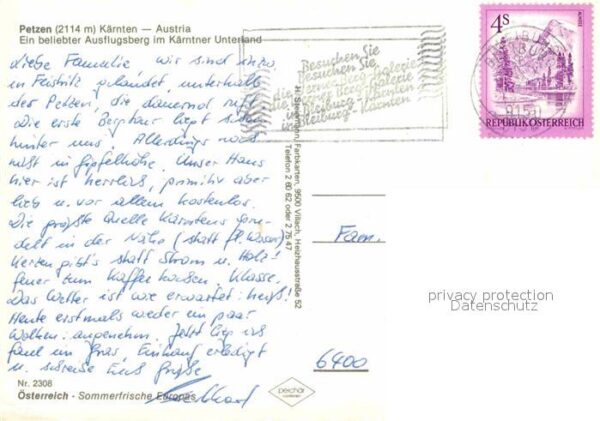 Petzen (2114 m) Kärnten — Austria
Ein beliebter Ausflugsberg im Kärntner Unterland
Liebe Familie wir sind
in Feistritz gelandet, unterhalb
der Petzen, die dauernd ruft
Die erste Bergtour liegt schon
hinter uns. Allerdings noch
nicht in Gipfelhöhe. Unser Haus
hier ist herrlich, primitiv aber
lieb u. vor allem kostenlos.
Die größte Quelle Kärntens
in der Nähe (statt fl. Wasser)
Kerzen gibt's statt Strom u. Holz-
feuer zum Kaffee kochen. Klasse.
Das Wetter ist wie erwartet: heiß!
Heute erstmals wieder ein paar
Wolken: angenehm. Jetzt lieg ich
faul im Gras, Einkauf erledigt
u. schreibe Euch Grüße
Nr. 2308
Österreich - Sommerfrische Europas
Besuchen Sie
die Werner Berg Galerie
in
Bleiburg - Kärnten
H. Farbkarten, 9500 Villach, Heizhausstraße 52
Telefon 2 60 62 oder 2 75 47
4S
REPUBLIK ÖSTERREICH
9150
Fam.
6400
privacy protection
Datenschutz